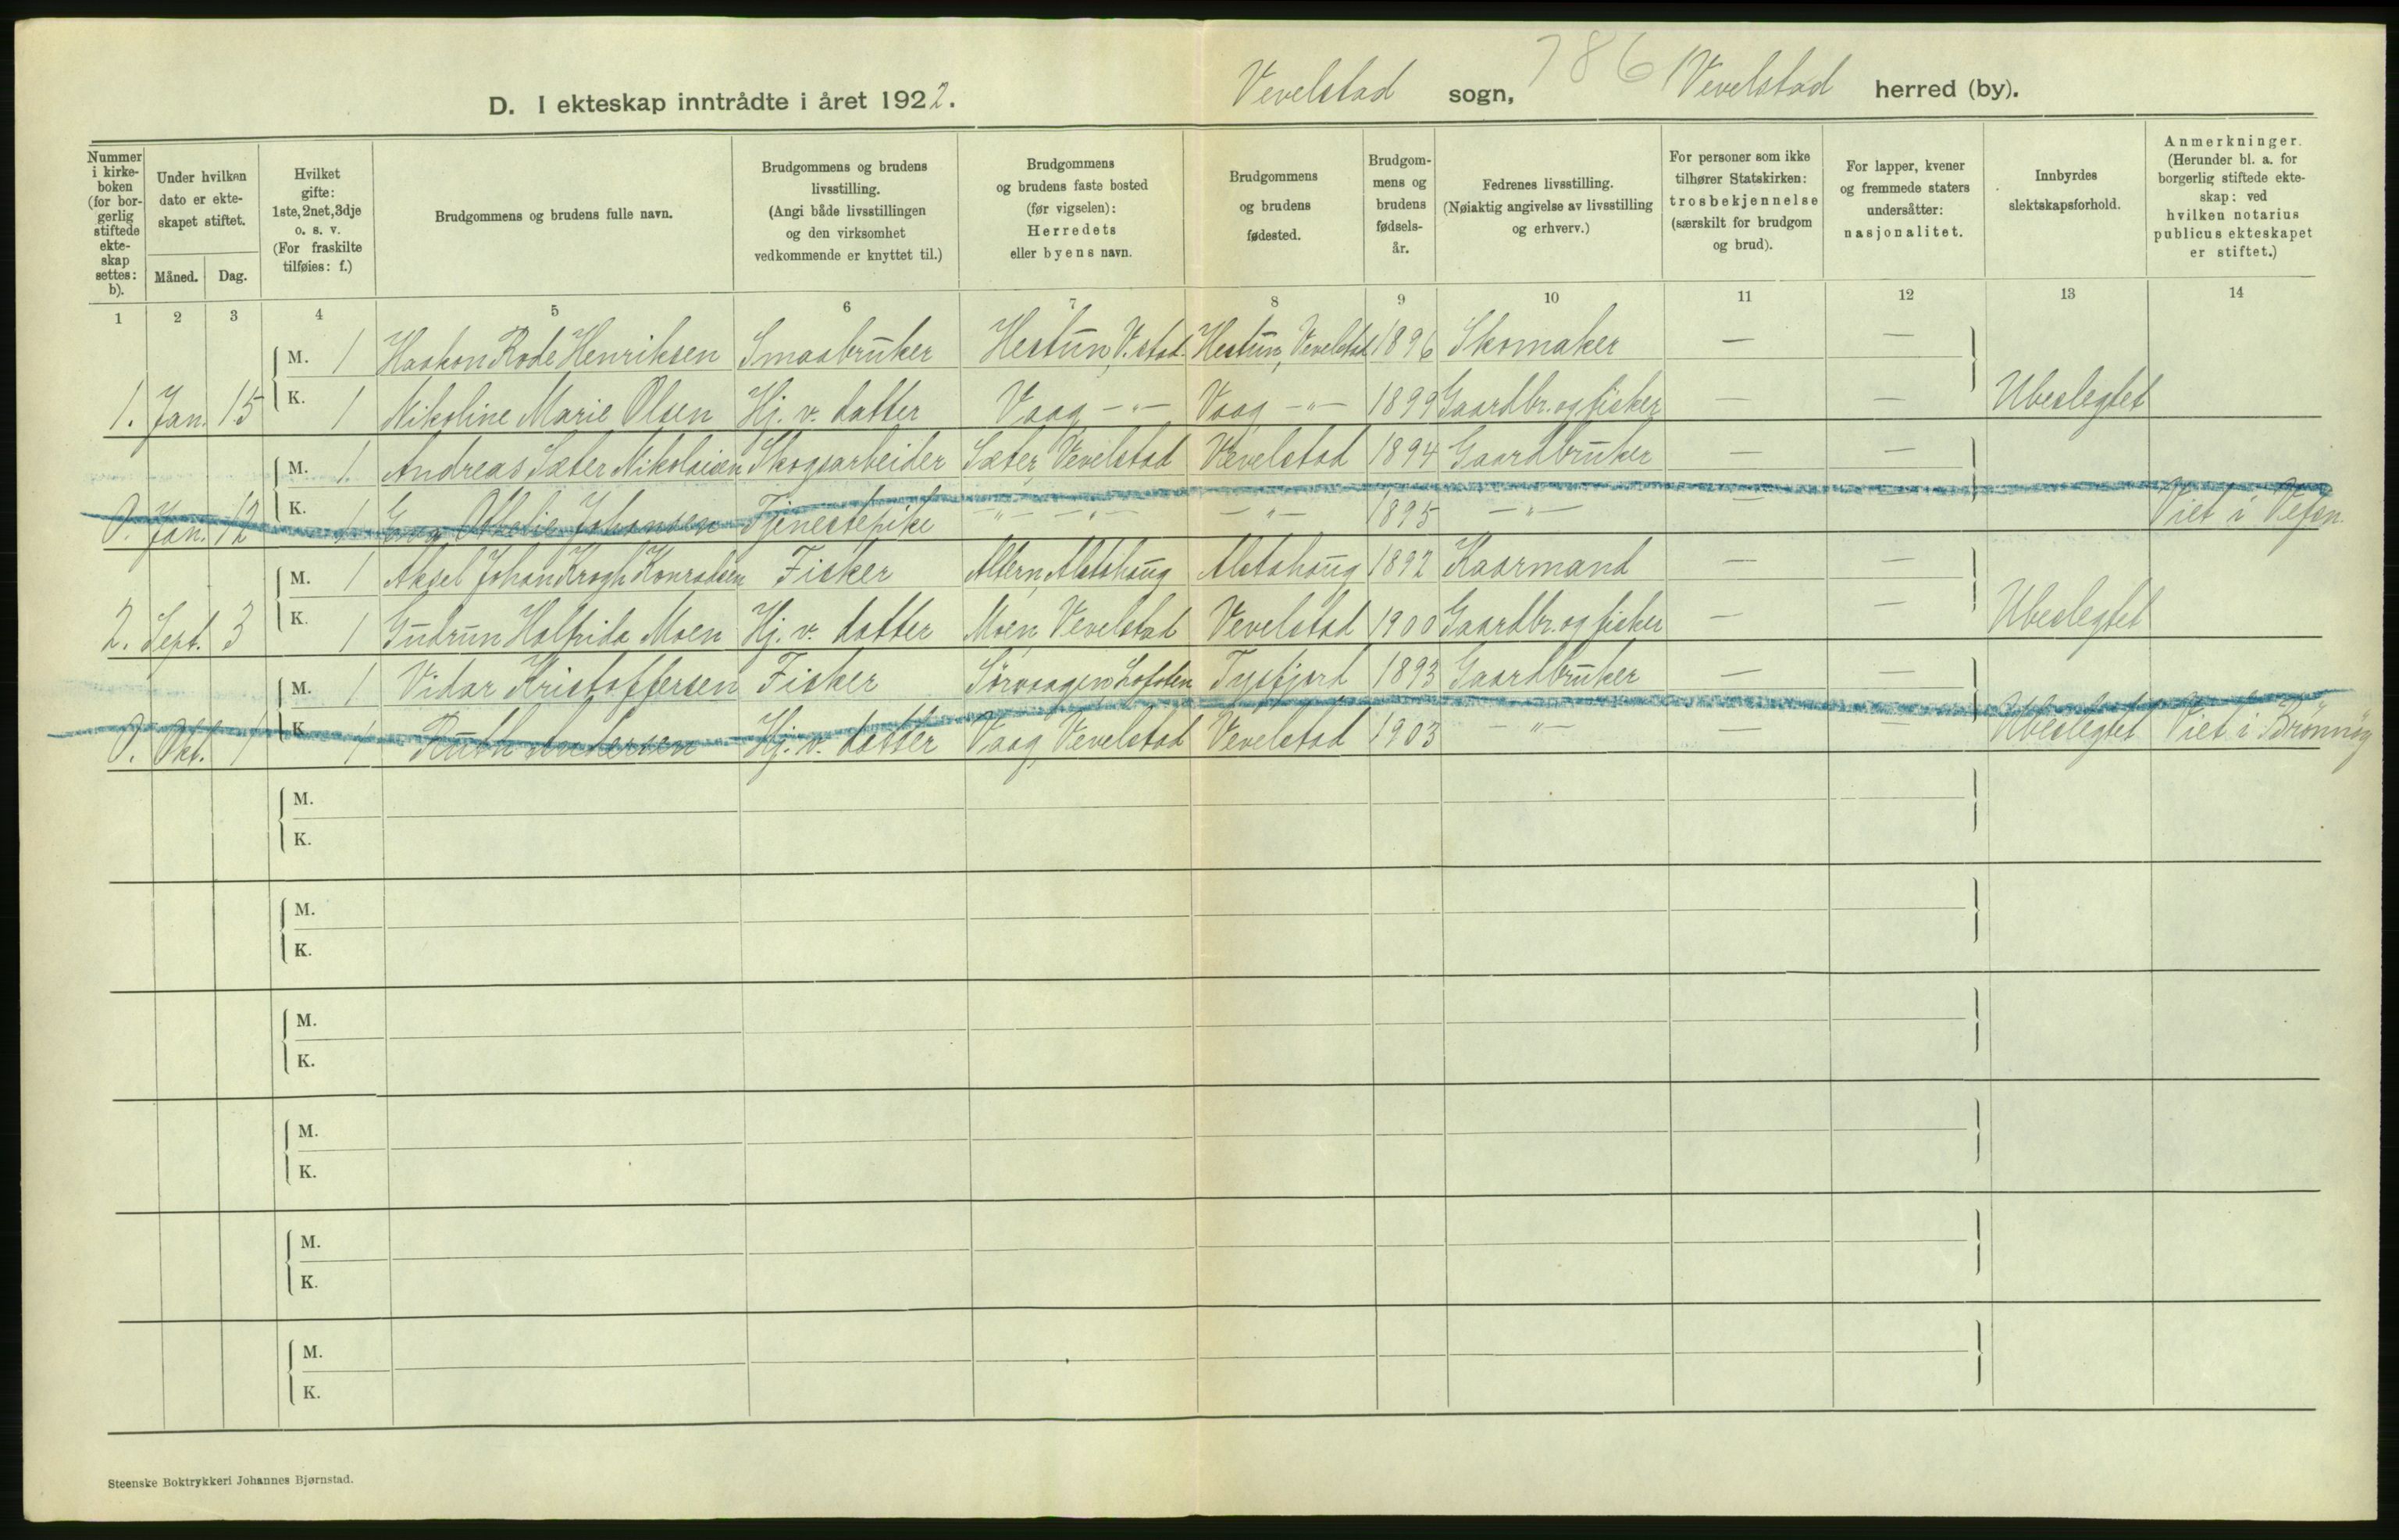 D. I ekteskap inntrådte i året 1922.
Vevelstad sogn, 786 Vevelstad herred (by).
Nummer i kirkeboken (for borgerlig stiftede ekteskap settes: b).
Under hvilken dato er ekteskapet stiftet.
Måned. Dag.
Hvilket gifte: 1ste, 2net, 3dje o. s. v. (For fraskilte tilføies: f.)
Brudgommens og brudens fulle navn.
Brudgommens og brudens livsstilling. (Angi både livsstillingen og den virksomhet vedkommende er knyttet til.)
Brudgommens og brudens faste bosted (før vigselen): Herredets eller byens navn.
Brudgommens og brudens fødested.
Brudgommens og brudens fødselsår.
Fedrenes livsstilling. (Nøiaktig angivelse av livsstilling og erhverv.)
For personer som ikke tilhører Statskirken: trosbekjennelse (særskilt for brudgom og brud).
For lapper, kvener og fremmede staters undersåtter: nasjonalitet.
Innbyrdes slektskapsforhold.
Anmerkninger. (Herunder bl. a. for borgerlig stiftede ekteskap: ved hvilken notarius publicus ekteskapet er stiftet.)
1 2 3 4 5 6 7 8 9 10 11 12 13 14
M. 1 Haakon Rode Henriksen Smaabruker Hestun, V.stad. Hestun, Vevelstad 1896 Skomaker — —
1. Jan. 15 K. 1 Nikoline Marie Olsen Hj. v. datter Vaag —"— Vaag —"— 1899 Gaardbr. og fisker — — Ubeslegtet
M. 1. Andreas Sæter Nikolaisen Skogsarbeider Sæter, Vevelstad Vevelstad 1894 Gaardbruker — —
0. Jan. 12 K. 1 Johansen Tjenestepike —"— —"— —"— 1895 —"— — Viet i Vefsn.
M. 1 Aksel Johan Krogh Konradsen Fisker Altern, Alstahaug Alstahaug 1892 Kaarmand — —
2. Sept. 3 K. 1 Gudrun Halfrida Moen Hj. v. datter Moen, Vevelstad Vevelstad 1900 Gaardbr. og fisker — — Ubeslegtet
M. 1 Vidar Kristoffersen Fisker Sørvaagen Lofoten Tysfjord 1893 Gaardbruker — —
0. Okt. 1 K. 1 Ruth Andersen Hj. v. datter Vaag, Vevelstad Vevelstad 1903 —"— — — Ubeslegtet Viet i Brönnöy
M.
K.
M.
K.
M.
K.
M.
K.
M.
K.
M.
K.
Steenske Boktrykkeri Johannes Bjørnstad.